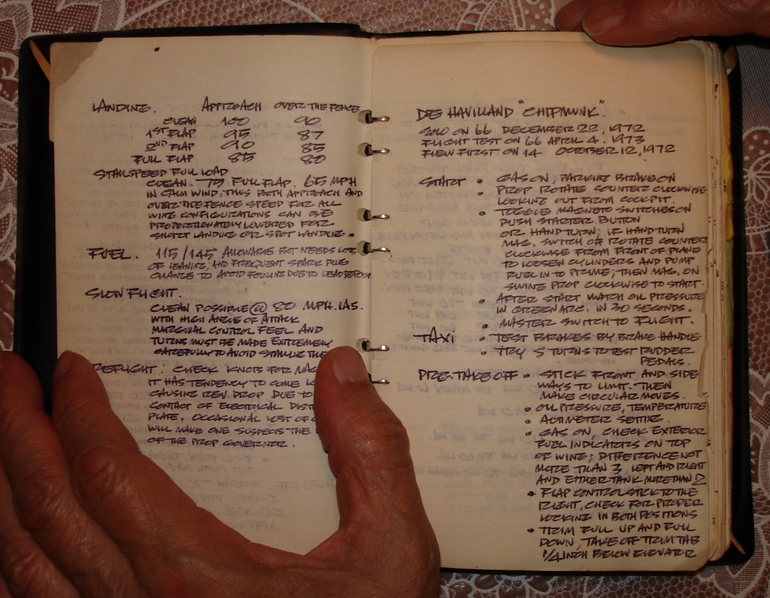 LANDING. APPROACH OVER THE FENCE
CLEAN 100 90
1ST FLAP 95 87
2ND FLAP 90 85
FULL FLAP 85 80
STALLSPEED FULL LOAD
CLEAN. 75 FULL FLAP. 65 MPH
IN CALM WIND. THUS BOTH APPROACH AND
OVER THE FENCE SPEED FOR ALL
WING CONFIGURATIONS CAN BE
PROPORTIONATELY LOWERED FOR
SHORT LANDING OR SPOT LANDING.
FUEL. 115/145 ALLOWABLE BUT NEEDS LOTS
OF LEANING, AND FREQUENT SPARK PLUG
CHANGE TO AVOID FOULING DUE TO LEAD
SLOW FLIGHT.
CLEAN POSSIBLE @ 80 MPH. IAS.
WITH HIGH ANGLE OF ATTACK
MARGINAL CONTROL FEEL AND
TURNS MUST BE MADE EXTREMELY
CAREFULLY TO AVOID STALLING THE
PREFLIGHT: CHECK KNOBS FOR MAG
IT HAS TENDENCY TO COME
CAUSING REV. DROP DUE TO
CONTACT OF ELECTRICAL DIST
PLATE. OCCASIONAL LOST OF
WILL MAKE ONE SUSPECTS THE
OF THE PROP GOVERNOR.
DE HAVILLAND "CHIPMUNK".
SOLO ON 66 DECEMBER 22, 1972
FLIGHT TEST ON 66 APRIL 4, 1973
FLEW FIRST ON 14 OCTOBER 12, 1972
START • GAS ON, PARKING BRAKE ON
• PROP ROTATE COUNTER CLOCKWISE
LOOKING OUT FROM COCKPIT.
• TOGGLE MAGNETO SWITCHES ON
PUSH STARTER BUTTON
OR HAND TURN; IF HAND TURN
MAG. SWITCH OFF ROTATE COUNTER
CLOCKWISE FROM FRONT OF PLANE
TO LOOSEN CYLINDERS AND PUMP
FUEL IN TO PRIME; THEN MAG. ON
SWING PROP CLOCKWISE TO START.
• AFTER START WATCH OIL PRESSURE
IN GREEN ARC. IN 30 SECONDS.
• MASTER SWITCH TO FLIGHT.
TAXI • TEST BRAKES BY BRAKE HANDLE
• TRY S TURNS TO TEST RUDDER
PEDALS.
PRE-TAKE OFF • STICK FRONT AND SIDE
WAYS TO LIMIT. THEN
MAKE CIRCULAR MOVES.
• OIL PRESSURE, TEMPERATURE
• ALTIMETER SETTING.
• GAS ON, CHECK EXTERIOR
FUEL INDICATORS ON TOP
OF WING; DIFFERENCE NOT
MORE THAN 3, LEFT AND RIGHT
AND EITHER TANK MORE THAN
• FLAP CONTROL STICK TO THE
RIGHT, CHECK FOR PROPER
LOCKING IN BOTH POSITIONS
• TRIM FULL UP AND FULL
DOWN, TAKE OFF TRIM TAB
1/4 INCH BELOW ELEVATOR